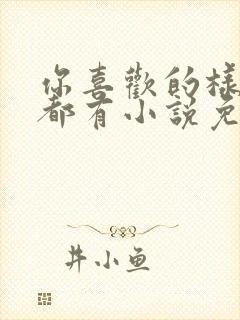 你喜歡的樣
都有小說免
井小鱼